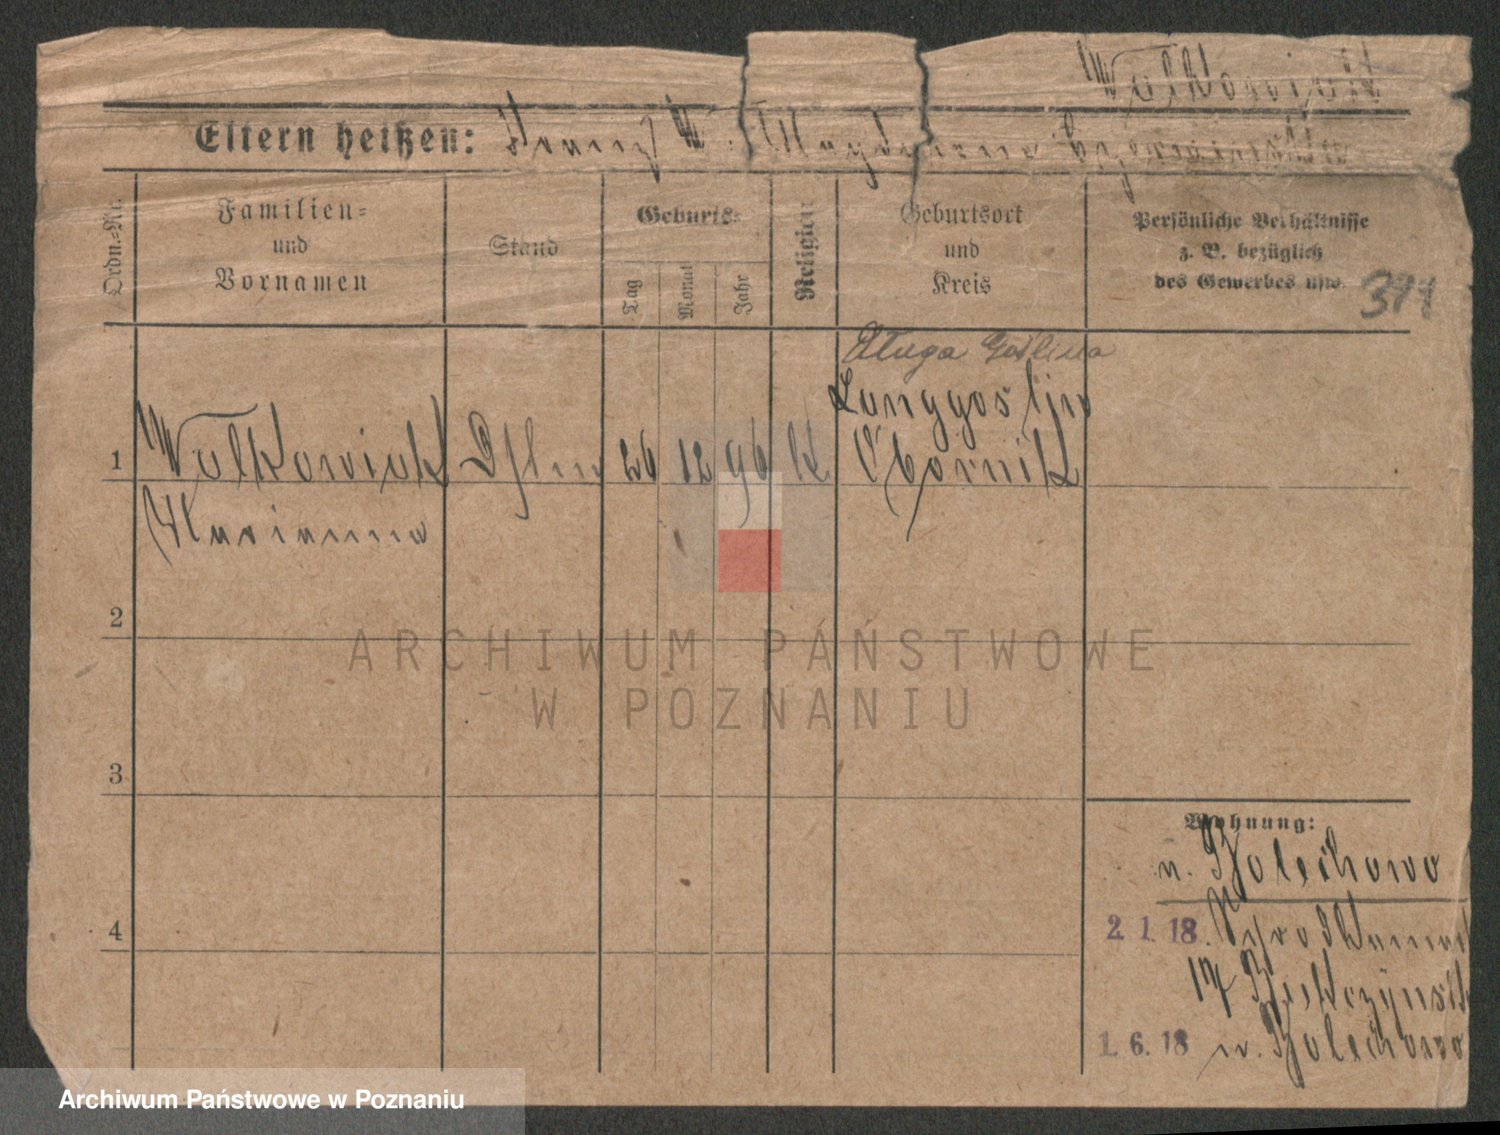 Walkowiak
Eltern heißen: Franz W. Magdalena
Ordn.-Nr.
Familien-
und
Vornamen
Stand
Geburts-
Tag
Monat
Jahr
Religion
Geburtsort
und
Kreis
Persönliche Verhältnisse
z. B. bezüglich
des Gewerbes usw.
394
Długa Goślina
Langgoslin
1 Walkowiak 26 12 96 K Obornik
Marianna
2
3
4
ARCHIWUM PAŃSTWOWE
W POZNANIU
Wohnung:
n. Bolechowo
2.1.18.
17
1.6.18 n. Bolechowo
Archiwum Państwowe w Poznaniu